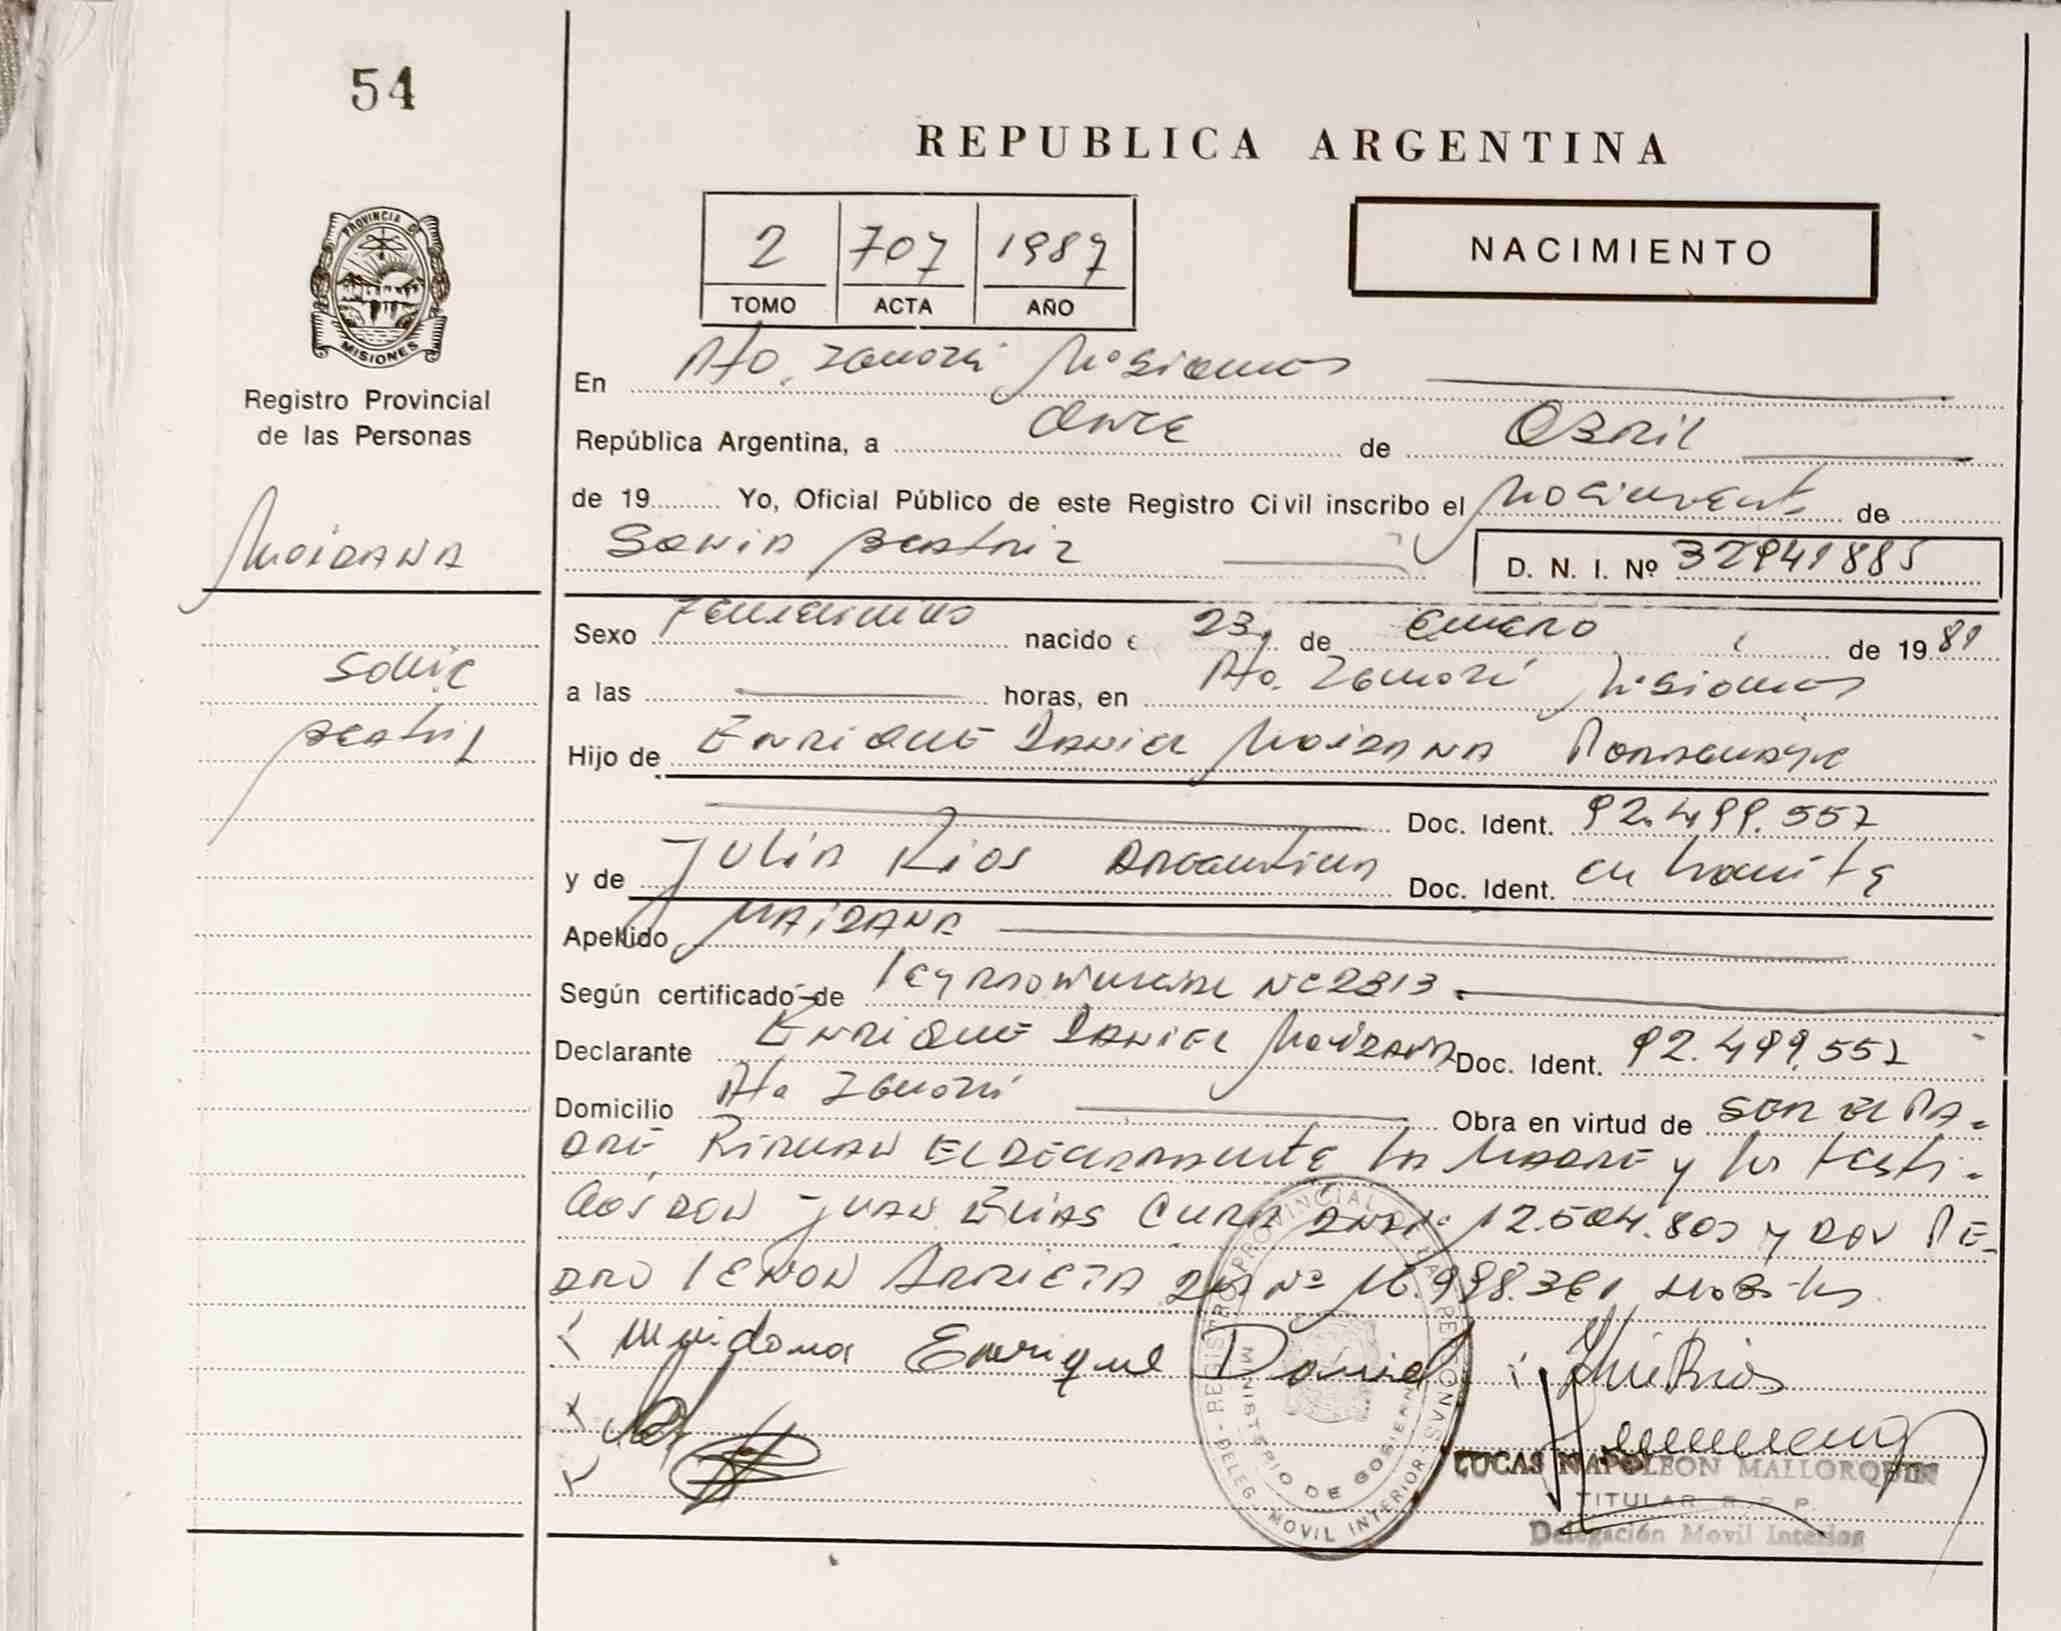 54
REPUBLICA ARGENTINA
PROVINCIA D.
MISIONES
2 707 1987
TOMO ACTA AÑO
NACIMIENTO
Registro Provincial
de las Personas
En Pto. Misiones
República Argentina, a once de Abril
de 19 Yo, Oficial Público de este Registro Civil inscribo el Nacimiento de
Maidana
Sonia Beatriz D. N. I. Nº 32941885
Sexo Femenino nacido e 23 de Enero de 1981
Sonia
Beatriz
a las horas, en Pto. Misiones
Hijo de Enrique Daniel Maidana Paraguayo
Doc. Ident. 92.499.557
y de Julia Rios Argentina Doc. Ident. en tramite
Apellido Maidana
Según certificado de Ley Nº 2313
Declarante Enrique Daniel Maidana Doc. Ident. 92.499.557
Domicilio Pto Obra en virtud de ser el pa-
dre Firman el declarante la madre y los testi-
gos don Juan Elias Cura DNI Nº 12.504.803 y don Pe-
dro Lenon Arrieta DNI Nº 16.998.361
Maidana Enrique Daniel
REGISTRO PROVINCIAL DE LAS PERSONAS
MINISTERIO DE GOBIERNO
DELEG. MOVIL INTERIOR
LUCAS NAPOLEON MALLORQUIN
TITULAR R. P. P.
Delegación Movil Interior